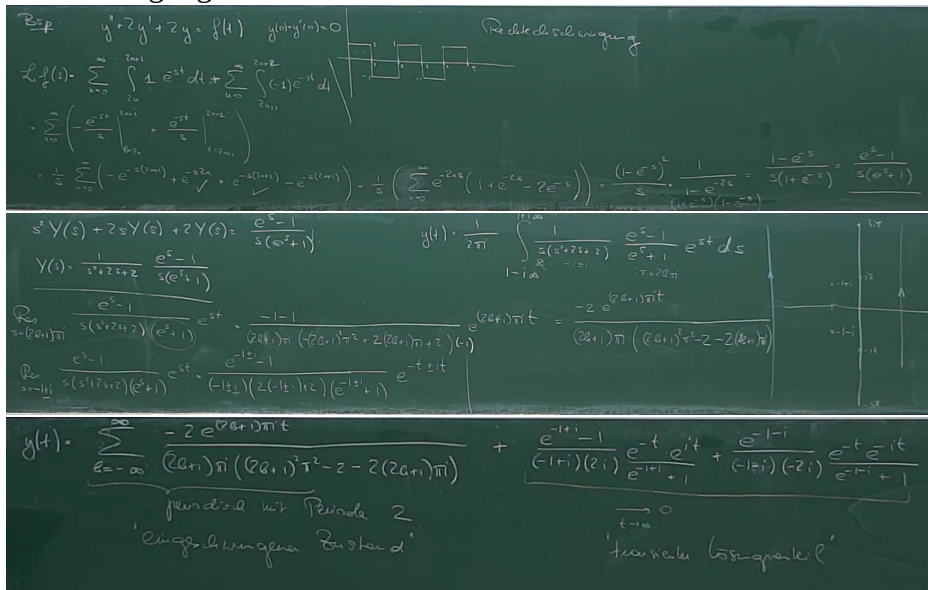 Bsp y'' + 2y' + 2y = f(t) y(0)=y'(0)=0 Rechteckschwingung
ℒf(s) = ∑_{k=0}^{∞} ∫_{2k}^{2k+1} 1 e^{-st} dt + ∑_{k=0}^{∞} ∫_{2k+1}^{2k+2} (-1) e^{-st} dt
= ∑_{k=0}^{∞} ( -\frac{e^{-st}}{s} |_{t=2k}^{2k+1} + \frac{e^{-st}}{s} |_{t=2k+1}^{2k+2} )
= \frac{1}{s} ∑_{k=0}^{∞} ( -e^{-s(2k+1)} + e^{-s2k} + e^{-s(2k+2)} - e^{-s(2k+1)} ) = \frac{1}{s} ( ∑_{k=0}^{∞} e^{-2ks} (1+e^{-2s}-2e^{-s}) ) = \frac{(1-e^{-s})^2}{s} · \frac{1}{1-e^{-2s}} = \frac{1-e^{-s}}{s(1+e^{-s})} = \frac{e^s-1}{s(e^s+1)}
(1+e^{-s})(1-e^{-s})
s²Y(s) + 2sY(s) + 2Y(s) = \frac{e^s-1}{s(e^s+1)} y(t) = \frac{1}{2πi} ∫_{1-i∞}^{1+i∞} \frac{1}{s(s²+2s+2)} \frac{e^s-1}{e^s+1} e^{st} ds
Y(s) = \frac{1}{s²+2s+2} \frac{e^s-1}{s(e^s+1)} -1±i
Res_{s=(2k+1)πi} \frac{e^s-1}{s(s²+2s+2)(e^s+1)} e^{st} = \frac{-1-1}{(2k+1)πi (-(2k+1)²π²+2(2k+1)πi+2)(-1)} e^{(2k+1)πit} = \frac{-2 e^{(2k+1)πit}}{(2k+1)πi ((2k+1)²π²-2-2(2k+1)πi)}
Res_{s=-1±i} \frac{e^s-1}{s(s²+2s+2)(e^s+1)} e^{st} = \frac{e^{-1±i}-1}{(-1±i)(2(-1±i)+2)(e^{-1±i}+1)} e^{-t±it}
-1+i
-1-i
y(t) = ∑_{k=-∞}^{∞} \frac{-2 e^{(2k+1)πit}}{(2k+1)πi ((2k+1)²π²-2-2(2k+1)πi)} + \frac{e^{-1+i}-1}{(-1+i)(2i)} \frac{e^{-t} · e^{it}}{e^{-1+i}+1} + \frac{e^{-1-i}}{(-1-i)(-2i)} \frac{e^{-t} e^{-it}}{e^{-1-i}+1}
periodisch mit Periode 2 ⟶_{t→∞} 0
"eingeschwungener Zustand" "transienter Lösungsanteil"